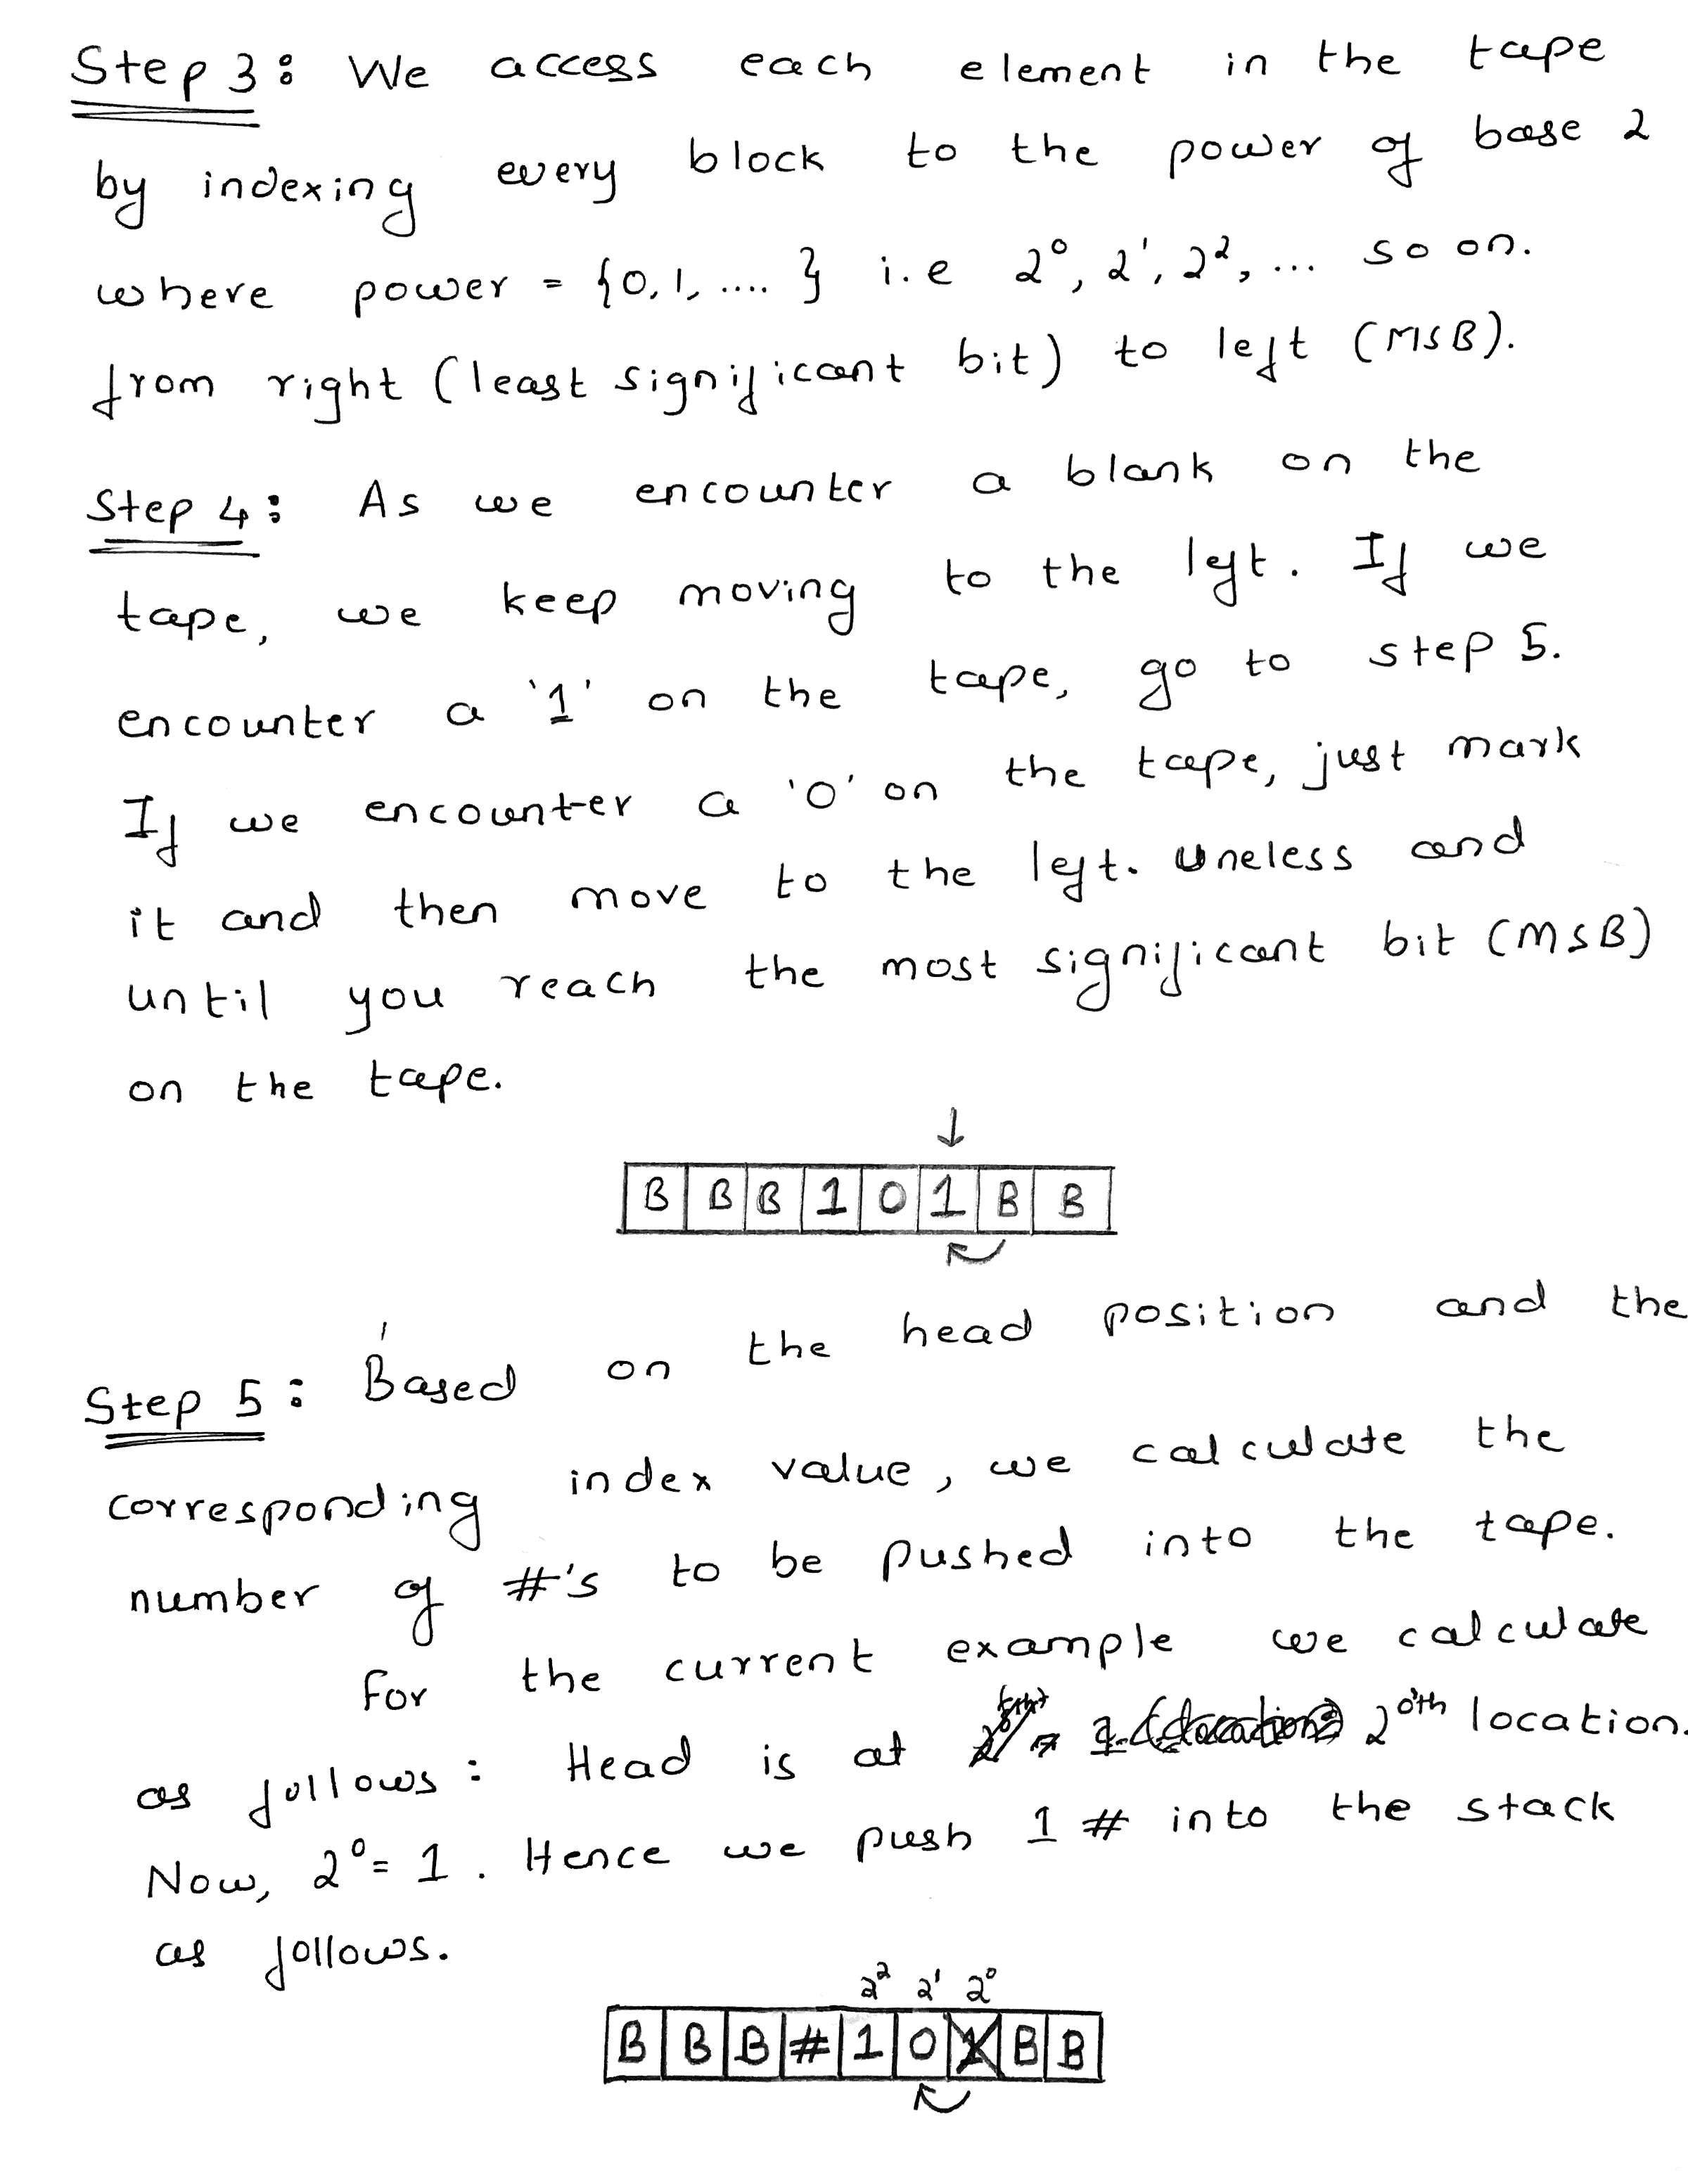 Step 3: We access each element in the tape
by indexing every block to the power of base 2
where power = {0,1, .... } i.e 2⁰, 2¹, 2², ... so on.
from right (least significant bit) to left (MSB).
Step 4: As we encounter a blank on the
tape, we keep moving to the left. If we
encounter a '1' on the tape, go to step 5.
If we encounter a '0' on the tape, just mark
it and then move to the left. Uneless and
until you reach the most significant bit (MSB)
on the tape.
↓
B B B 1 0 1 B B
Step 5: Based on the head position and the
corresponding index value, we calculate the
number of #'s to be pushed into the tape.
For the current example we calculate
as follows: Head is at 2⁰'th location.
Now, 2⁰ = 1. Hence we push 1 # into the stack
as follows.
2² 2¹ 2⁰
B B B # 1 0 1 B B